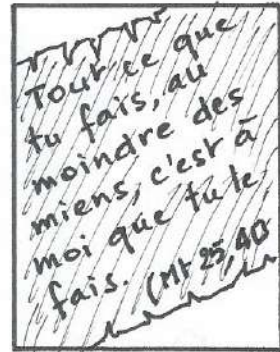 Tout ce que
tu fais, au
moindre des
miens, c'est à
moi que tu le
fais. (Mt 25,40)